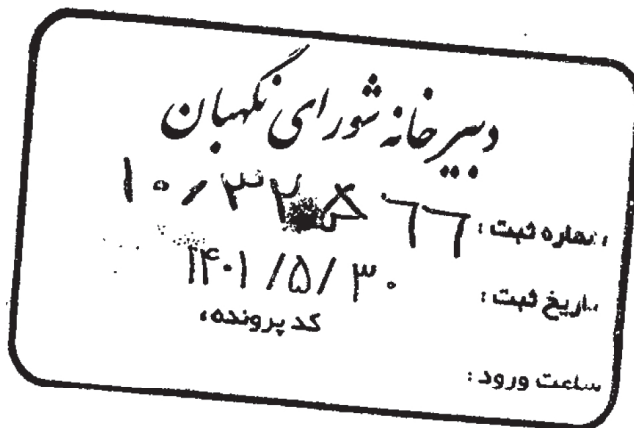 دبیرخانه شورای نگهبان
شماره ثبت :
تاریخ ثبت : ۱۴۰۱ /۵/ ۳۰
کد پرونده:
ساعت ورود :